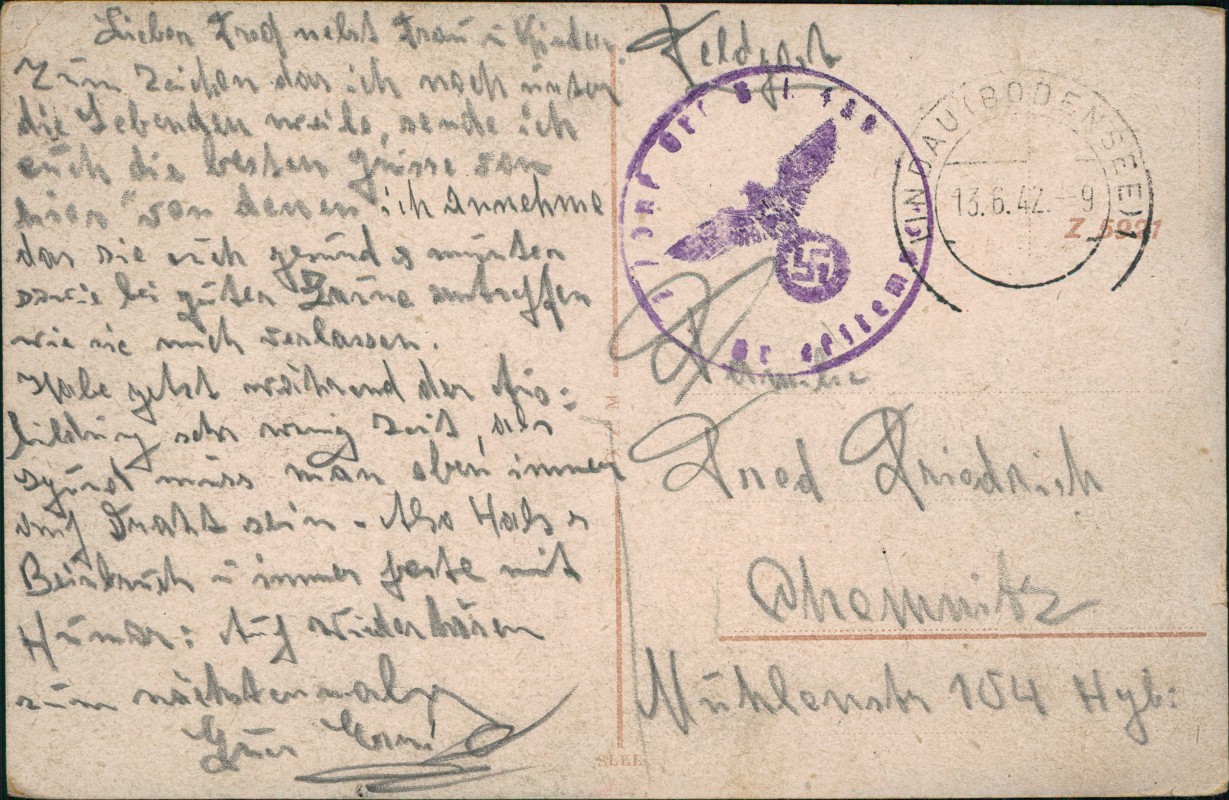 Lieber Fred nebst Frau u Kinder.
Zum Zeichen das ich noch unter
die Lebenden weile, sende ich
euch die besten grüsse von
hier von denen ich Annehme
das sie euch gesund & munter
sowie bei guter Laune antreffen
wie sie mich verlassen.
Habe jetzt während der Aus:
bildung sehr wenig Zeit, den
muss man eben immer
auf Draht sein. Also Hals u
Beinbruch u immer feste mit
Humor: Auf wiederhören
zum nächstenmal
Euer
Feldpost
LINDAU (BODENSEE)
13.6.42.-9
Z 5931
Familie
Fred Friedrich
Chemnitz
Mühlenstr 104 Hgb: